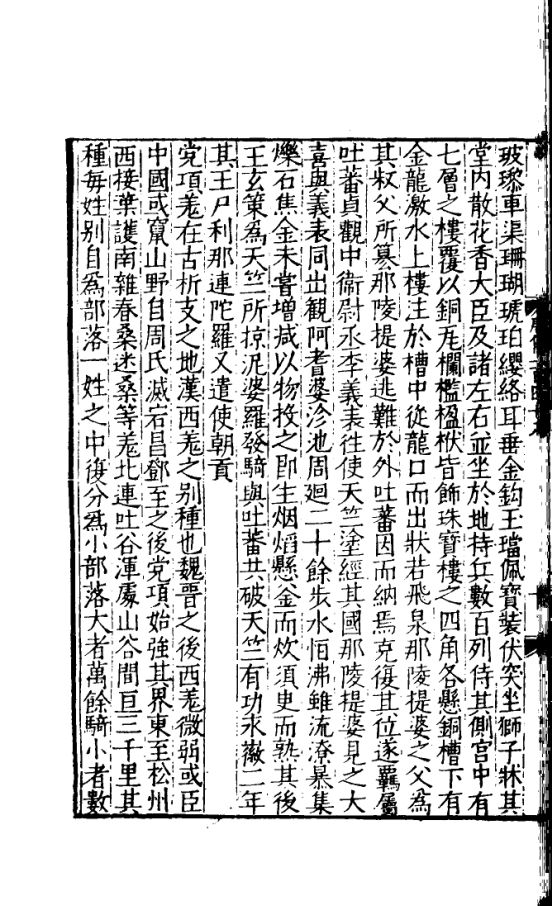 玻瓈車渠珊瑚琥珀纓絡耳垂金鈎玉璫佩寶裝伏突坐獅子牀其
堂内散花香大臣及諸左右並坐於地持兵數百列侍其側宫中有
七層之樓覆以銅瓦欄檻楹栿皆飾珠寶樓之四角各懸銅槽下有
金龍激水上樓注於槽中從龍口而出狀若飛泉那陵提婆之父為
其叔父所簒那陵提婆逃難於外吐蕃因而納焉克復其位遂羈屬
吐蕃貞觀中衛尉丞李義表往使天竺塗經其國那陵提婆見之大
喜與義表同出觀阿耆婆沴池周迴二十餘步水恒沸雖流潦暴集
爍石焦金未嘗增減以物投之即生烟熖懸釜而炊須㬰而熟其後
王玄策為天竺所掠泥婆羅發騎與吐蕃共破天竺有功永徽二年
其王尸利那連陀羅又遣使朝貢
党項羗在古析支之地漢西羗之别種也魏晋之後西羗微弱或臣
中國或竄山野自周氏滅宕昌鄧至之後党項始強其界東至松州
西接葉護南雜春桑迷桑等羗北連吐谷渾處山谷間亘三千里其
種每姓别自為部落一姓之中復分為小部落大者萬餘騎小者數